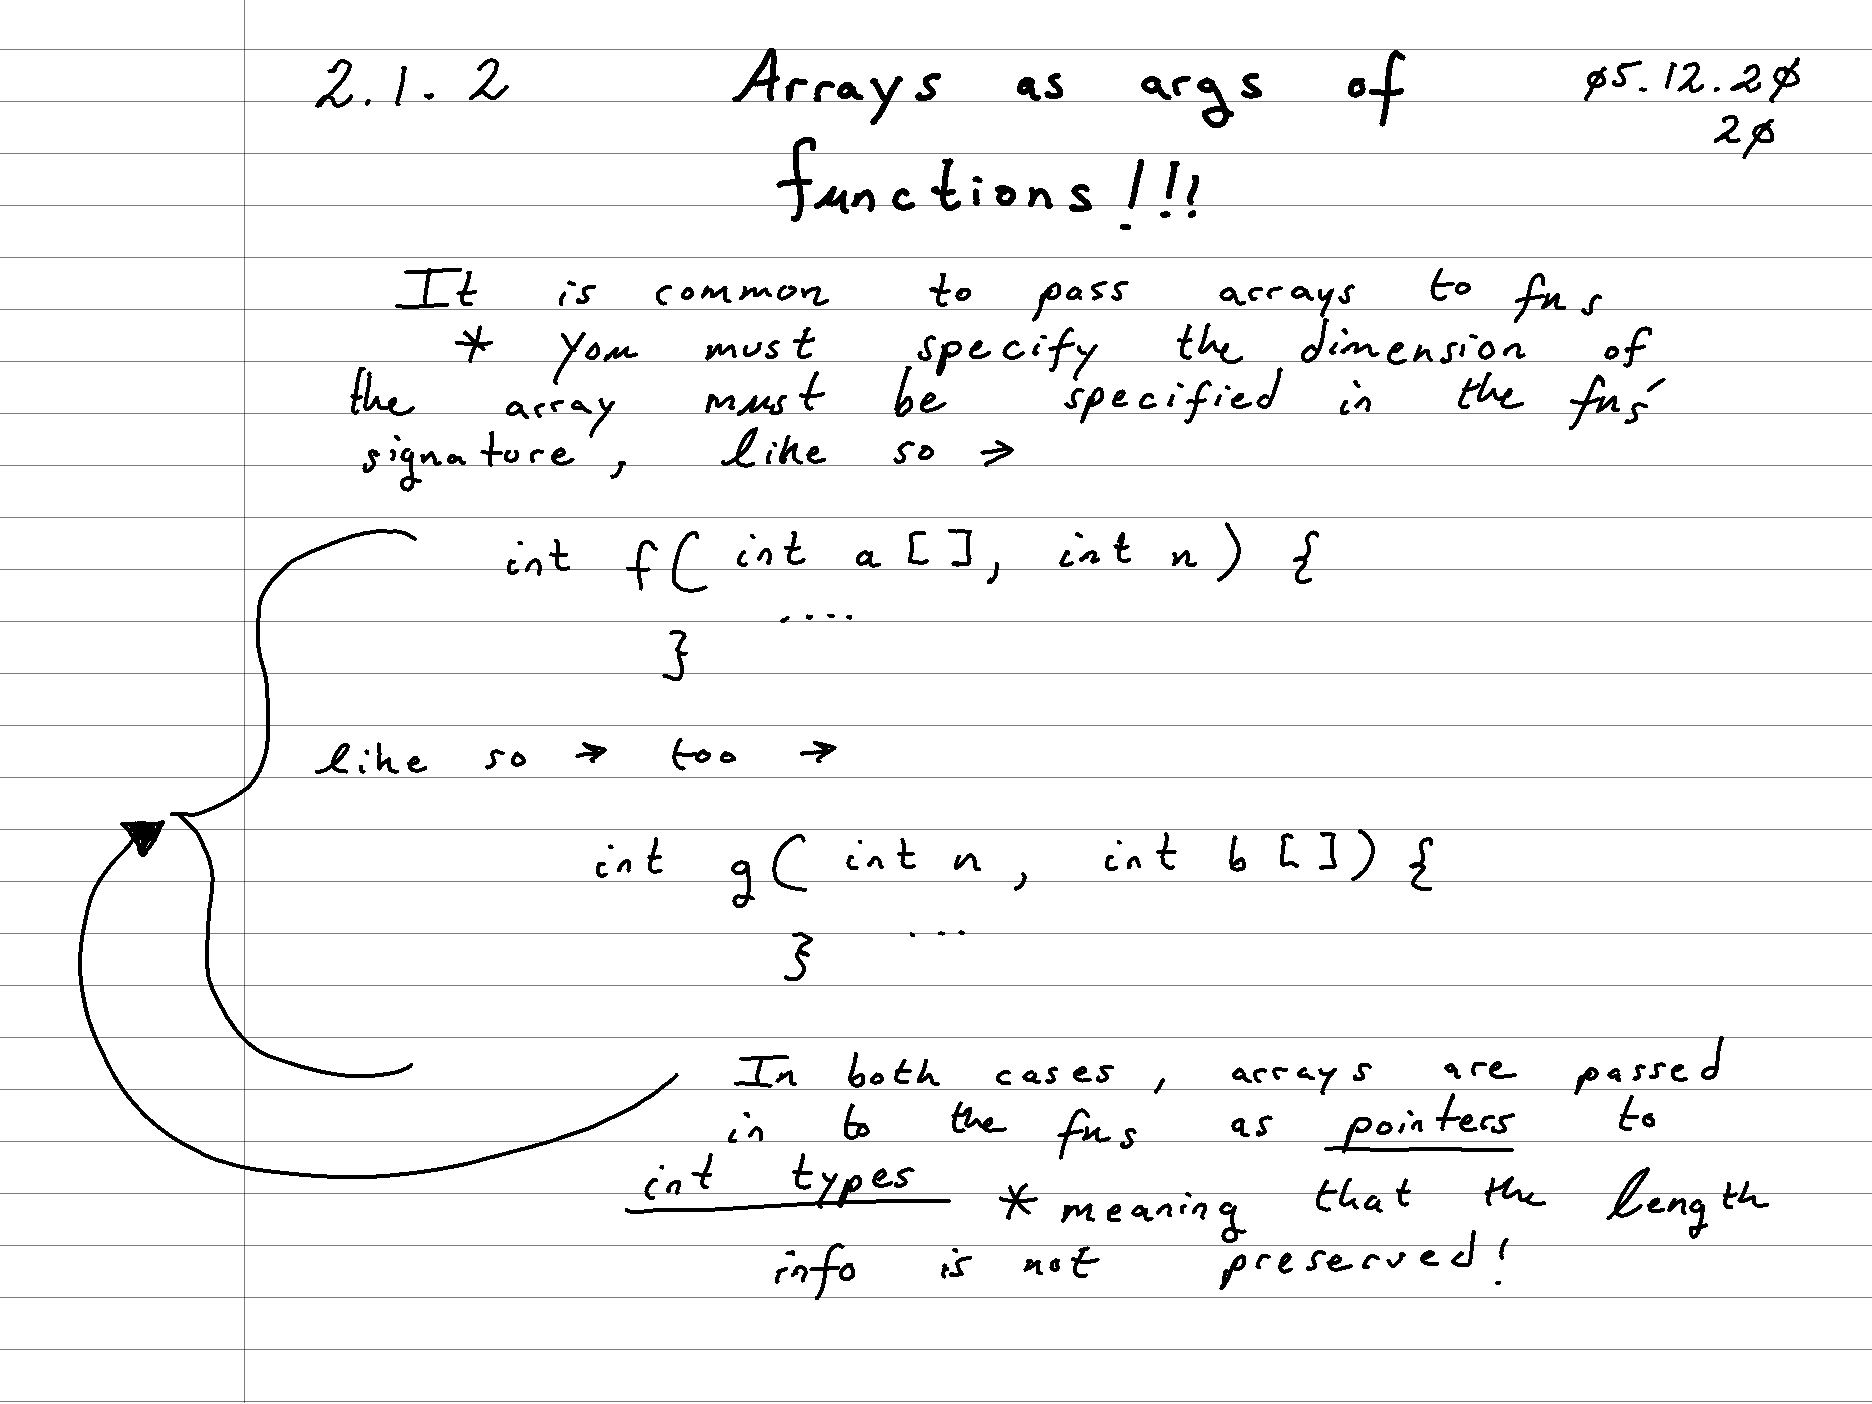 2.1.2 Arrays as args of ø5.12.2ø
2ø
functions!!!
It is common to pass arrays to fns
* You must specify the dimension of
the array must be specified in the fns'
signature, like so →
int f( int a [ ], int n ) {
....
}
like so → too →
int g( int n , int b [ ] ) {
...
}
In both cases, arrays are passed
in to the fns as pointers to
int types * meaning that the length
info is not preserved!